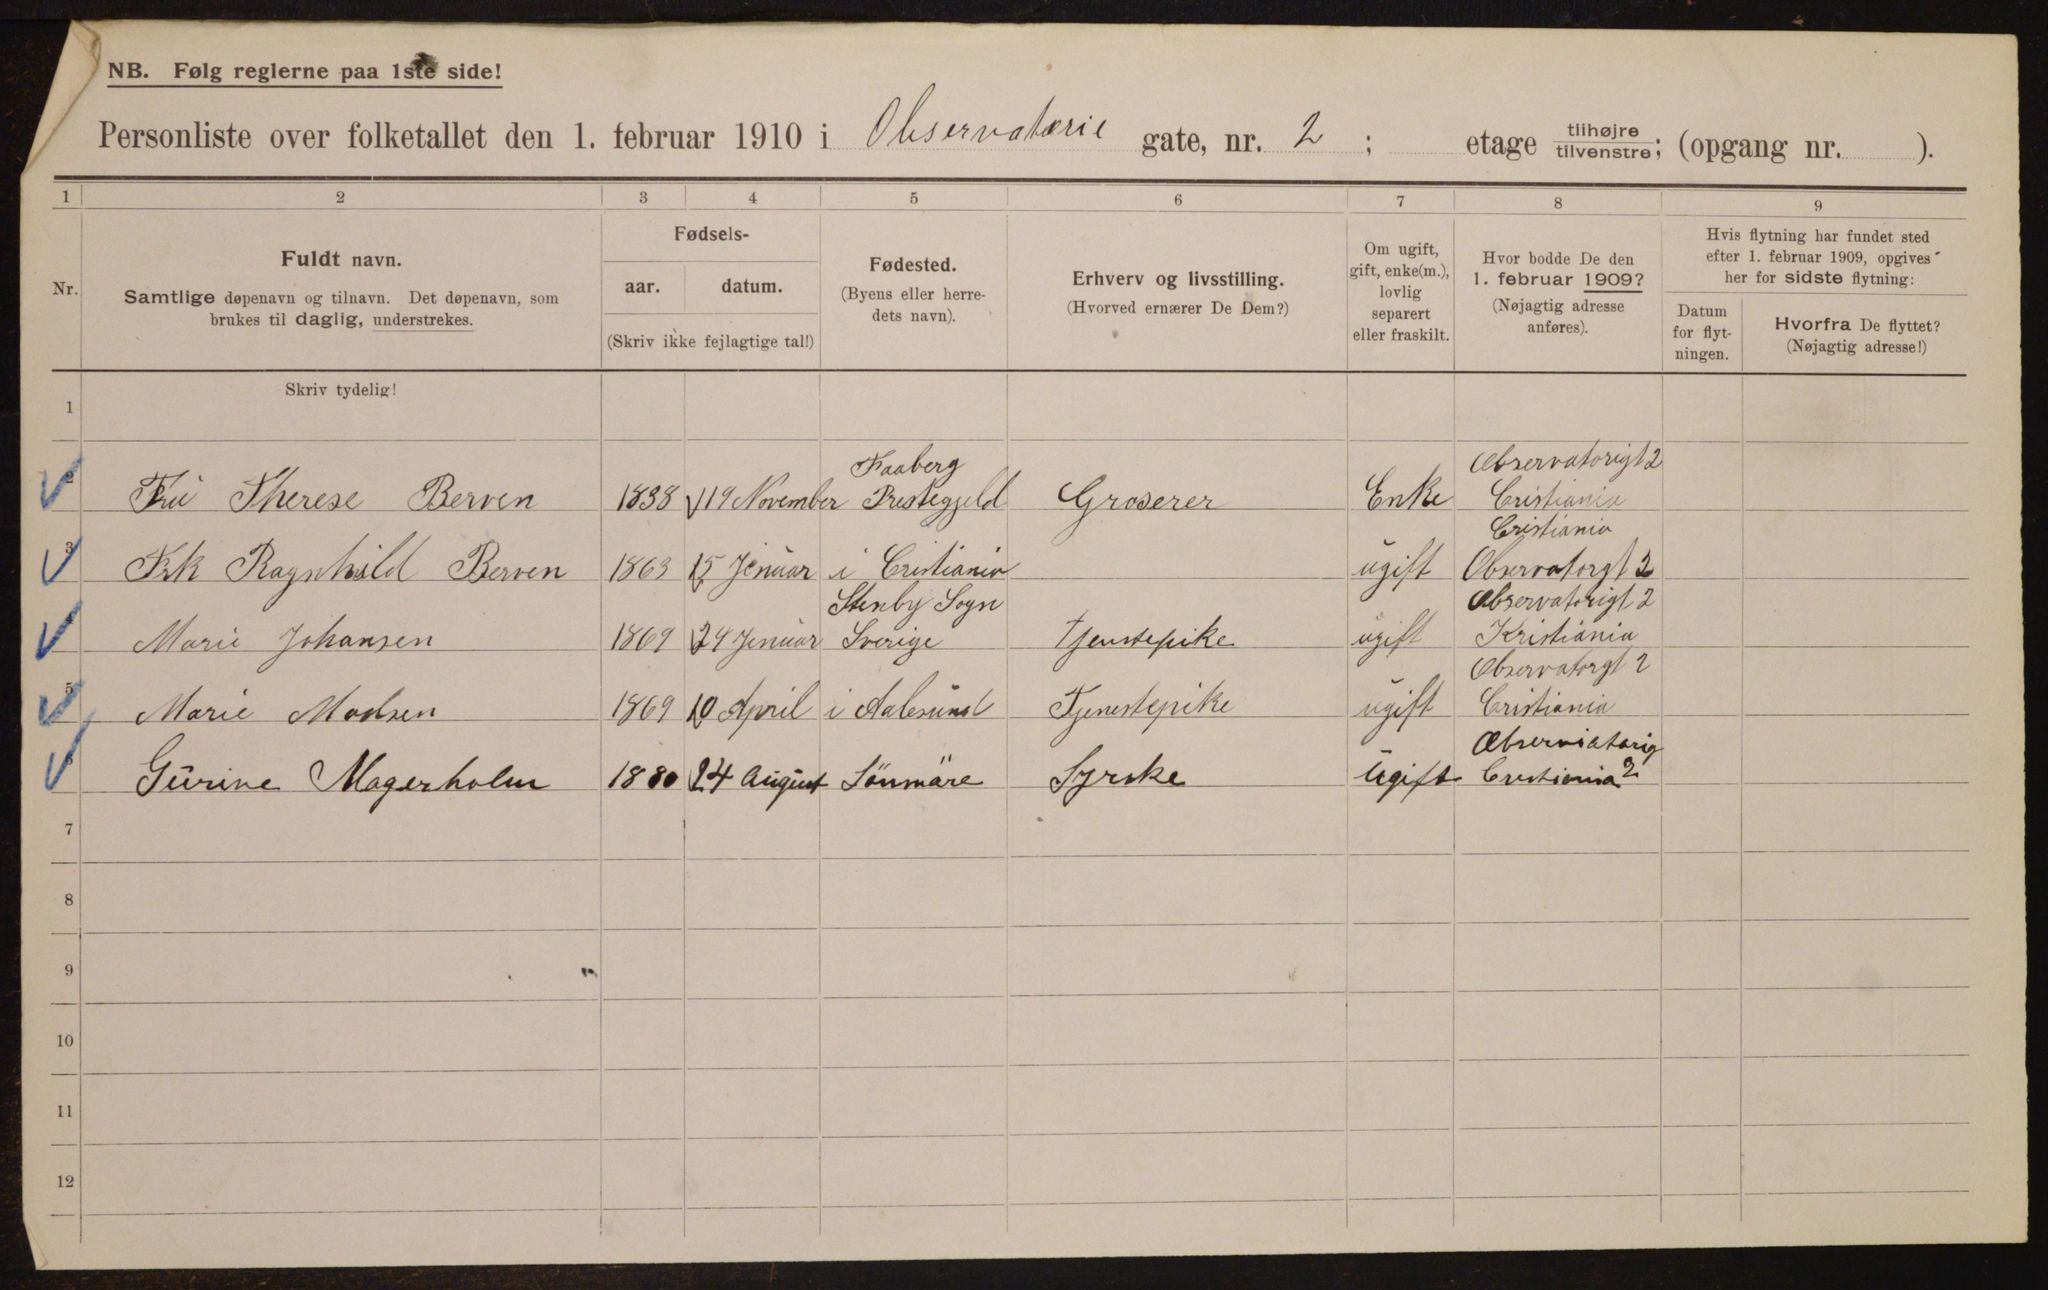 NB. Følg reglerne paa 1ste side!
Personliste over folketallet den 1. februar 1910 i Observatorie gate, nr. 2 ; etage tilhøjre tilvenstre; (opgang nr. ).
1 2 3 4 5 6 7 8 9
Nr.
Fuldt navn.
Samtlige døpenavn og tilnavn. Det døpenavn, som
brukes til daglig, understrekes.
Fødsels-
aar. datum.
(Skriv ikke fejlagtige tal!)
Fødested.
(Byens eller herre-
dets navn).
Erhverv og livsstilling.
(Hvorved ernærer De Dem?)
Om ugift,
gift, enke(m.),
lovlig
separert
eller fraskilt.
Hvor bodde De den
1. februar 1909?
(Nøjagtig adresse
anføres).
Hvis flytning har fundet sted
efter 1. februar 1909, opgives
her for sidste flytning:
Datum
for flyt-
ningen.
Hvorfra De flyttet?
(Nøjagtig adresse!)
Skriv tydelig!
1
Faaberg Observatorigt 2
2 Fru Therese Berven 1838 19 November Prestegjeld Groserer Enke Cristiania
Cristiania
3 Frk Ragnhild Berven 1863 15 Jenuar i Cristiania ugift Observatorgt 2
Stenby Sogn Observatorigt 2
Marie Johansen 1869 24 Jenuar Sverige Tjenstepike ugift Kristiania
Observatorgt 2
5 Marie Madsen 1869 10 April i Aalesund Tjenestepike ugift Cristiania
Observiatorig
Gurine Magerholm 1880 24 August Sönmäre Syrske Ugift Cristiania 2
7
8
9
10
11
12